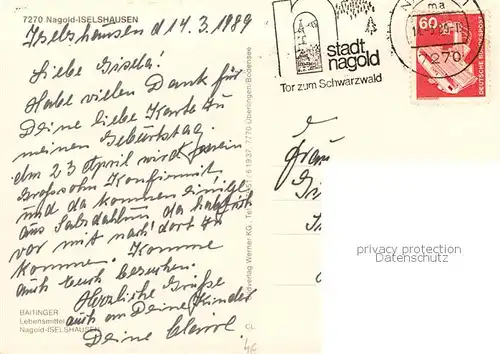 7270 Nagold-ISELSHAUSEN
Iselshausen d 14.3.1989
Liebe Gisela!
Habe vielen Dank für
Deine liebe Karte zu
meinen Geburtstag.
Am 23 April wird mein
Grossohn Konfirmit
und da kommen einige
aus Salzdahlum, da hab ich
vor mit nach dort zu
kommen. Komme
auch Euch besuchen.
Herzliche Grüße
auch an Deine Kinder
Deine
BAITINGER
Lebensmittel
Nagold-ISELSHAUSEN
stadt
nagold
Tor zum Schwarzwald
7270
60
DEUTSCHE BUNDESPOST
Werner KG
7770 Überlingen/Bodensee
Frau
privacy protection